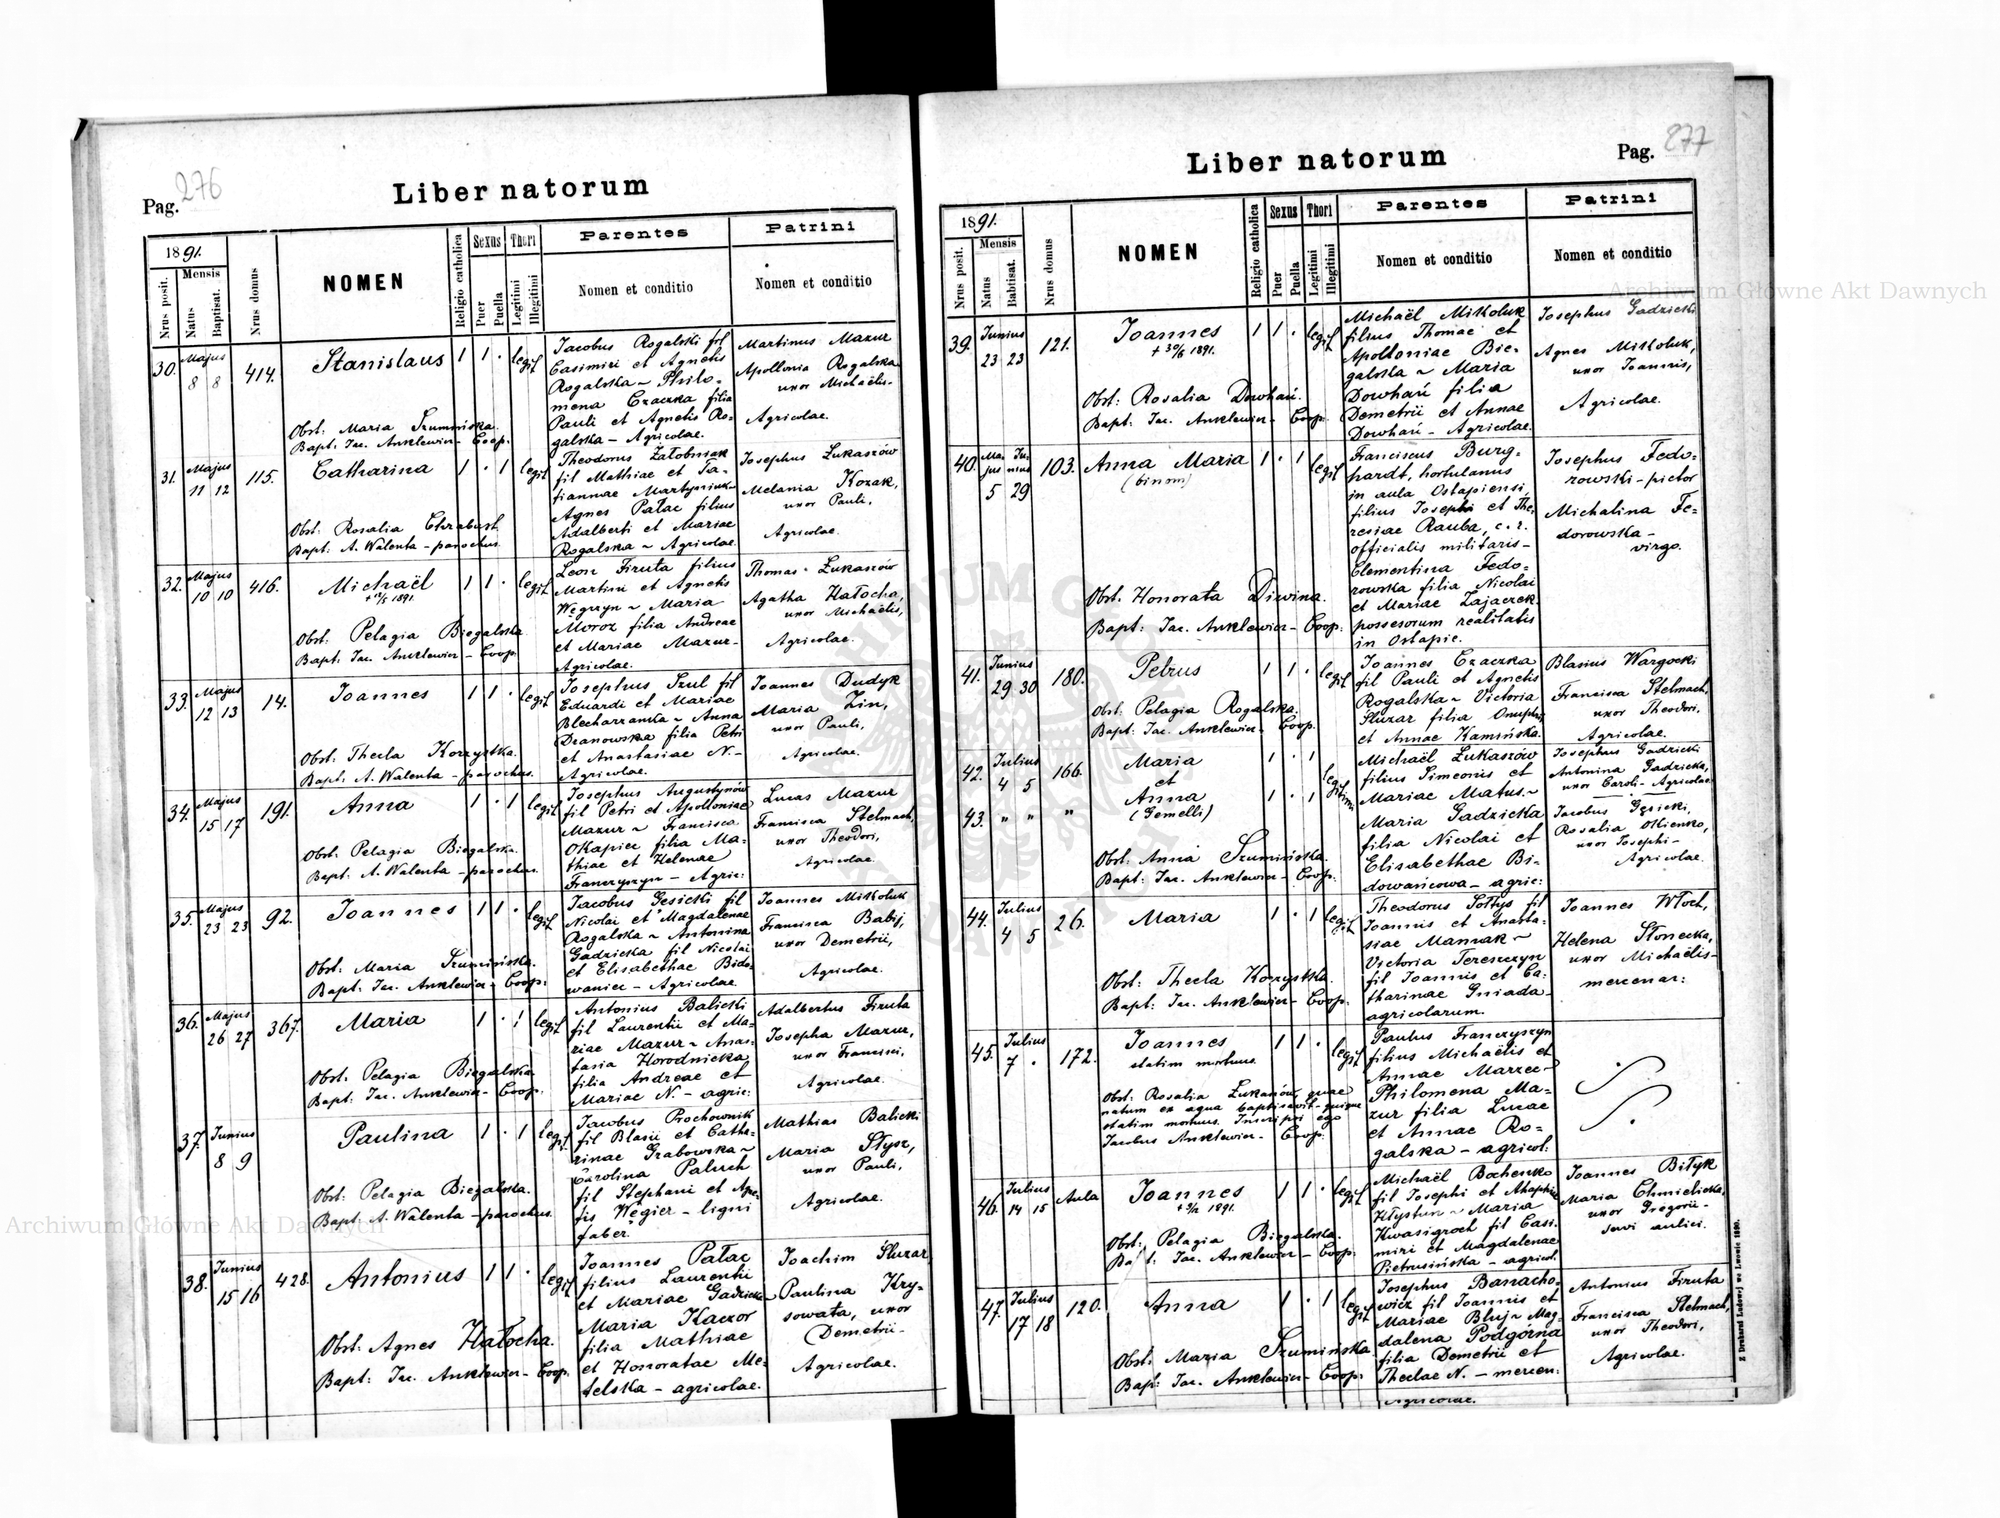 Pag. 276
Liber natorum
1891.
Nrus posit.
Mensis
Natus
Baptisat.
Nrus domus
NOMEN
Religio catholica
Sexus
Puer
Puella
Thori
Legitimi
Illegitimi
Parentes
Nomen et conditio
Patrini
Nomen et conditio
30. Majus 8 8 414. Stanislaus 1 1 · legit
Obst: Maria Szumińska.
Bapt: Jac. Anklewicz – Coop.
Jacobus Rogalski fil
Casimiri et Agnetis
Rogalska ~ Philo-
mena Czaczka filia
Pauli et Agnetis Ro-
galska – Agricolae.
Martinus Mazur
Apollonia Rogalska
uxor Michaëlis-
Agricolae.
31. Majus 11 12 115. Catharina 1 · 1 legit
Obst: Rosalia Chrabust
Bapt: A. Walenta – parochus.
Theodorus Załobniak
fil Mathiae et Ta-
tiannae Martyniuk ~
Agnes Pałac filius
Adalberti et Mariae
Rogalska ~ Agricolae.
Josephus Łukaszów
Melania Kozak,
uxor Pauli,
Agricolae.
32. Majus 10 10 416. Michaël 1 1 · legit
Obst: Pelagia Biegalska
Bapt: Jac. Anklewicz – Coop.
Leon Firuta filius
Martini et Agnetis
Węgrzyn ~ Maria
Moroz filia Andreae
et Mariae Mazur-
Agricolae.
Thomas Łukaszów
Agatha Hałocha,
uxor Michaëlis,
Agricolae.
33. Majus 12 13 14. Joannes 1 1 · legit
Obst: Thecla Korzystka.
Bapt: A. Walenta – parochus.
Josephus Szul fil
Eduardi et Mariae
Blecharzanka ~ Anna
Dranowska filia Petri
et Anastasiae N. –
Agricolae.
Joannes Dudyk
Maria Zin,
uxor Pauli,
Agricolae.
34. Majus 15 17 191. Anna 1 · 1 legit
Obst: Pelagia Biegalska.
Bapt: A. Walenta – parochus.
Josephus Augustynów
fil Petri et Apolloniae
Mazur ~ Francisca
Okapiec filia Ma-
thiae et Helenae
Franczyszyn – Agric:
Lucas Mazur
Francisca Stelmach,
uxor Theodori,
Agricolae.
35. Majus 23 23 92. Joannes 1 1 · legit
Obst: Maria Szumińska.
Bapt: Jac. Anklewicz – Coop:
Jacobus Gesicki fil
Nicolai et Magdalenae
Rogalska ~ Antonina
Gadzicka fil Nicolai
et Elisabethae Bido-
waniec – Agricolae.
Joannes Mikoluk
Francisca Babij,
uxor Demetrii,
Agricolae.
36. Majus 26 27 367. Maria 1 · 1 legit
Obst: Pelagia Biegalska
Bapt: Jac. Anklewicz – Coop.
Antonius Balicki
fil Laurentii et Ma-
riae Mazur ~ Anas-
tasia Horodnicka
filia Andreae et
Mariae N. – agric:
Adalbertus Firuta
Josepha Mazur,
uxor Francisci,
Agricolae.
37. Junius 8 9 Paulina 1 · 1 legit.
Obst: Pelagia Biegalska.
Bapt: A. Walenta – parochus.
Jacobus Prochownik
fil Blasii et Catha-
rinae Grabowska ~
Carolina Paluch
fil Stephani et Agne-
tis Węgier – ligni
faber.
Mathias Balicki
Maria Słysz,
uxor Pauli,
Agricolae.
38. Junius 15 16 428. Antonius 1 1 · legit
Obst: Agnes Hałocha.
Bapt: Jac. Anklewicz – Coop.
Joannes Pałac
filius Laurentii
et Mariae Gadzicka ~
Maria Kaczor
filia Mathiae
et Honoratae Me-
telska – agricolae.
Joachim Śluzar
Paulina Kry-
sowata, uxor
Demetrii-
Agricolae.
Pag. 277
Liber natorum
1891.
Nrus posit.
Mensis
Natus
Babtisat.
Nrus domus
NOMEN
Religio catholica
Sexus
Puer
Puella
Thori
Legitimi
Illegitimi
Parentes
Nomen et conditio
Patrini
Nomen et conditio
39. Junius 23 23 121. Joannes 1 1 · legit
+ 30/6 1891.
Obst: Rosalia Dowhań.
Bapt: Jac. Anklewicz – Coop.
Michaël Mikoluk
filius Thomae et
Apolloniae Bie-
galska ~ Maria
Dowhań filia
Demetrii et Annae
Dowhań – Agricolae.
Josephus Gadzicki
Agnes Mikoluk,
uxor Joannis,
Agricolae.
40. Majus Junius 5 29 103. Anna Maria 1 · 1 legit
(binom)
Obst: Honorata Diwina.
Bapt: Jac. Anklewicz – Coop:
Franciscus Burg-
hardt, hortulanus
in aula Ostapiensi,
filius Josephi et The-
resiae Rauba, c. r.
officialis militaris –
Clementina Fedo-
rowska filia Nicolai
et Mariae Zajaczek
possesorum realitatis
in Ostapie.
Josephus Fedo-
rowski – pictor
Michalina Fe-
dorowska –
virgo.
41. Junius 29 30 180. Petrus 1 1 · legit
Obst: Pelagia Rogalska.
Bapt: Jac. Anklewicz – Coop.
Joannes Czaczka
fil Pauli et Agnetis
Rogalska ~ Victoria
Śluzar filia Onuphrii
et Annae Kamińska.
Blasius Wargocki
Francisca Stelmach,
uxor Theodori,
Agricolae.
42. Julius 4 5 166. Maria 1 · 1
et legitimi
43. " " " Anna 1 · 1
(Gemelli)
Obst: Anna Szumińska.
Bapt: Jac. Anklewicz – Coop:
Michaël Łukaszów
filius Simeonis et
Mariae Matus ~
Maria Gadzicka
filia Nicolai et
Elisabethae Bi-
dowańcowa – agric:
Josephus Gadzicki
Antonina Gadzicka,
uxor Caroli – Agricolae
Jacobus Gęsicki,
Rosalia Okienko,
uxor Josephi –
Agricolae.
44. Julius 4 5 26. Maria 1 · 1 legit
Obst: Thecla Korzystka.
Bapt: Jac. Anklewicz – Coop.
Theodorus Sołtys fil
Joannis et Anasta-
siae Maniak ~
Victoria Tereszczyn
fil Joannis et Ca-
tharinae Gniada –
agricolarum.
Joannes Włoch,
Helena Słonecka,
uxor Michaëlis –
mercenar:
45. Julius 7 · 172. Joannes 1 1 · legit
statim mortuus.
Obst: Rosalia Łukaszów, quae
natum ex aqua baptisavit – quique
statim mortuus. Inscripsi ego
Jacobus Anklewicz – Coop:
Paulus Franczyszyn
filius Michaëlis et
Annae Marzec –
Philomena Ma-
zur filia Lucae
et Annae Ro-
galska – agricol:
46. Julius 14 15 Aula Joannes 1 1 · legit
Obst: Pelagia Biegalska.
Bapt: Jac. Anklewicz – Coop:
Michaël Bochenko
fil Josephi et Ahaphiae
Kłystun ~ Maria
Kwasigroch fil Casi-
miri et Magdalenae
Pietrusińska – agricol.
Joannes Biłyk
Maria Chmielicka,
uxor Gregorii –
servi aulici.
47. Julius 17 18 120. Anna 1 · 1 legit
Obst: Maria Szumińska.
Bapt: Jac. Anklewicz – Coop:
Josephus Banacho-
wicz fil Joannis et
Mariae Bluj ~ Mag-
dalena Podgórna
filia Demetrii et
Theclae N. – mercen:
Agricolae.
Antonius Firuta
Francisca Stelmach,
uxor Theodori,
Agricolae.
Z Drukarni Ludowej we Lwowie 1890.
Archiwum Główne Akt Dawnych
Archiwum Główne Akt Dawnych